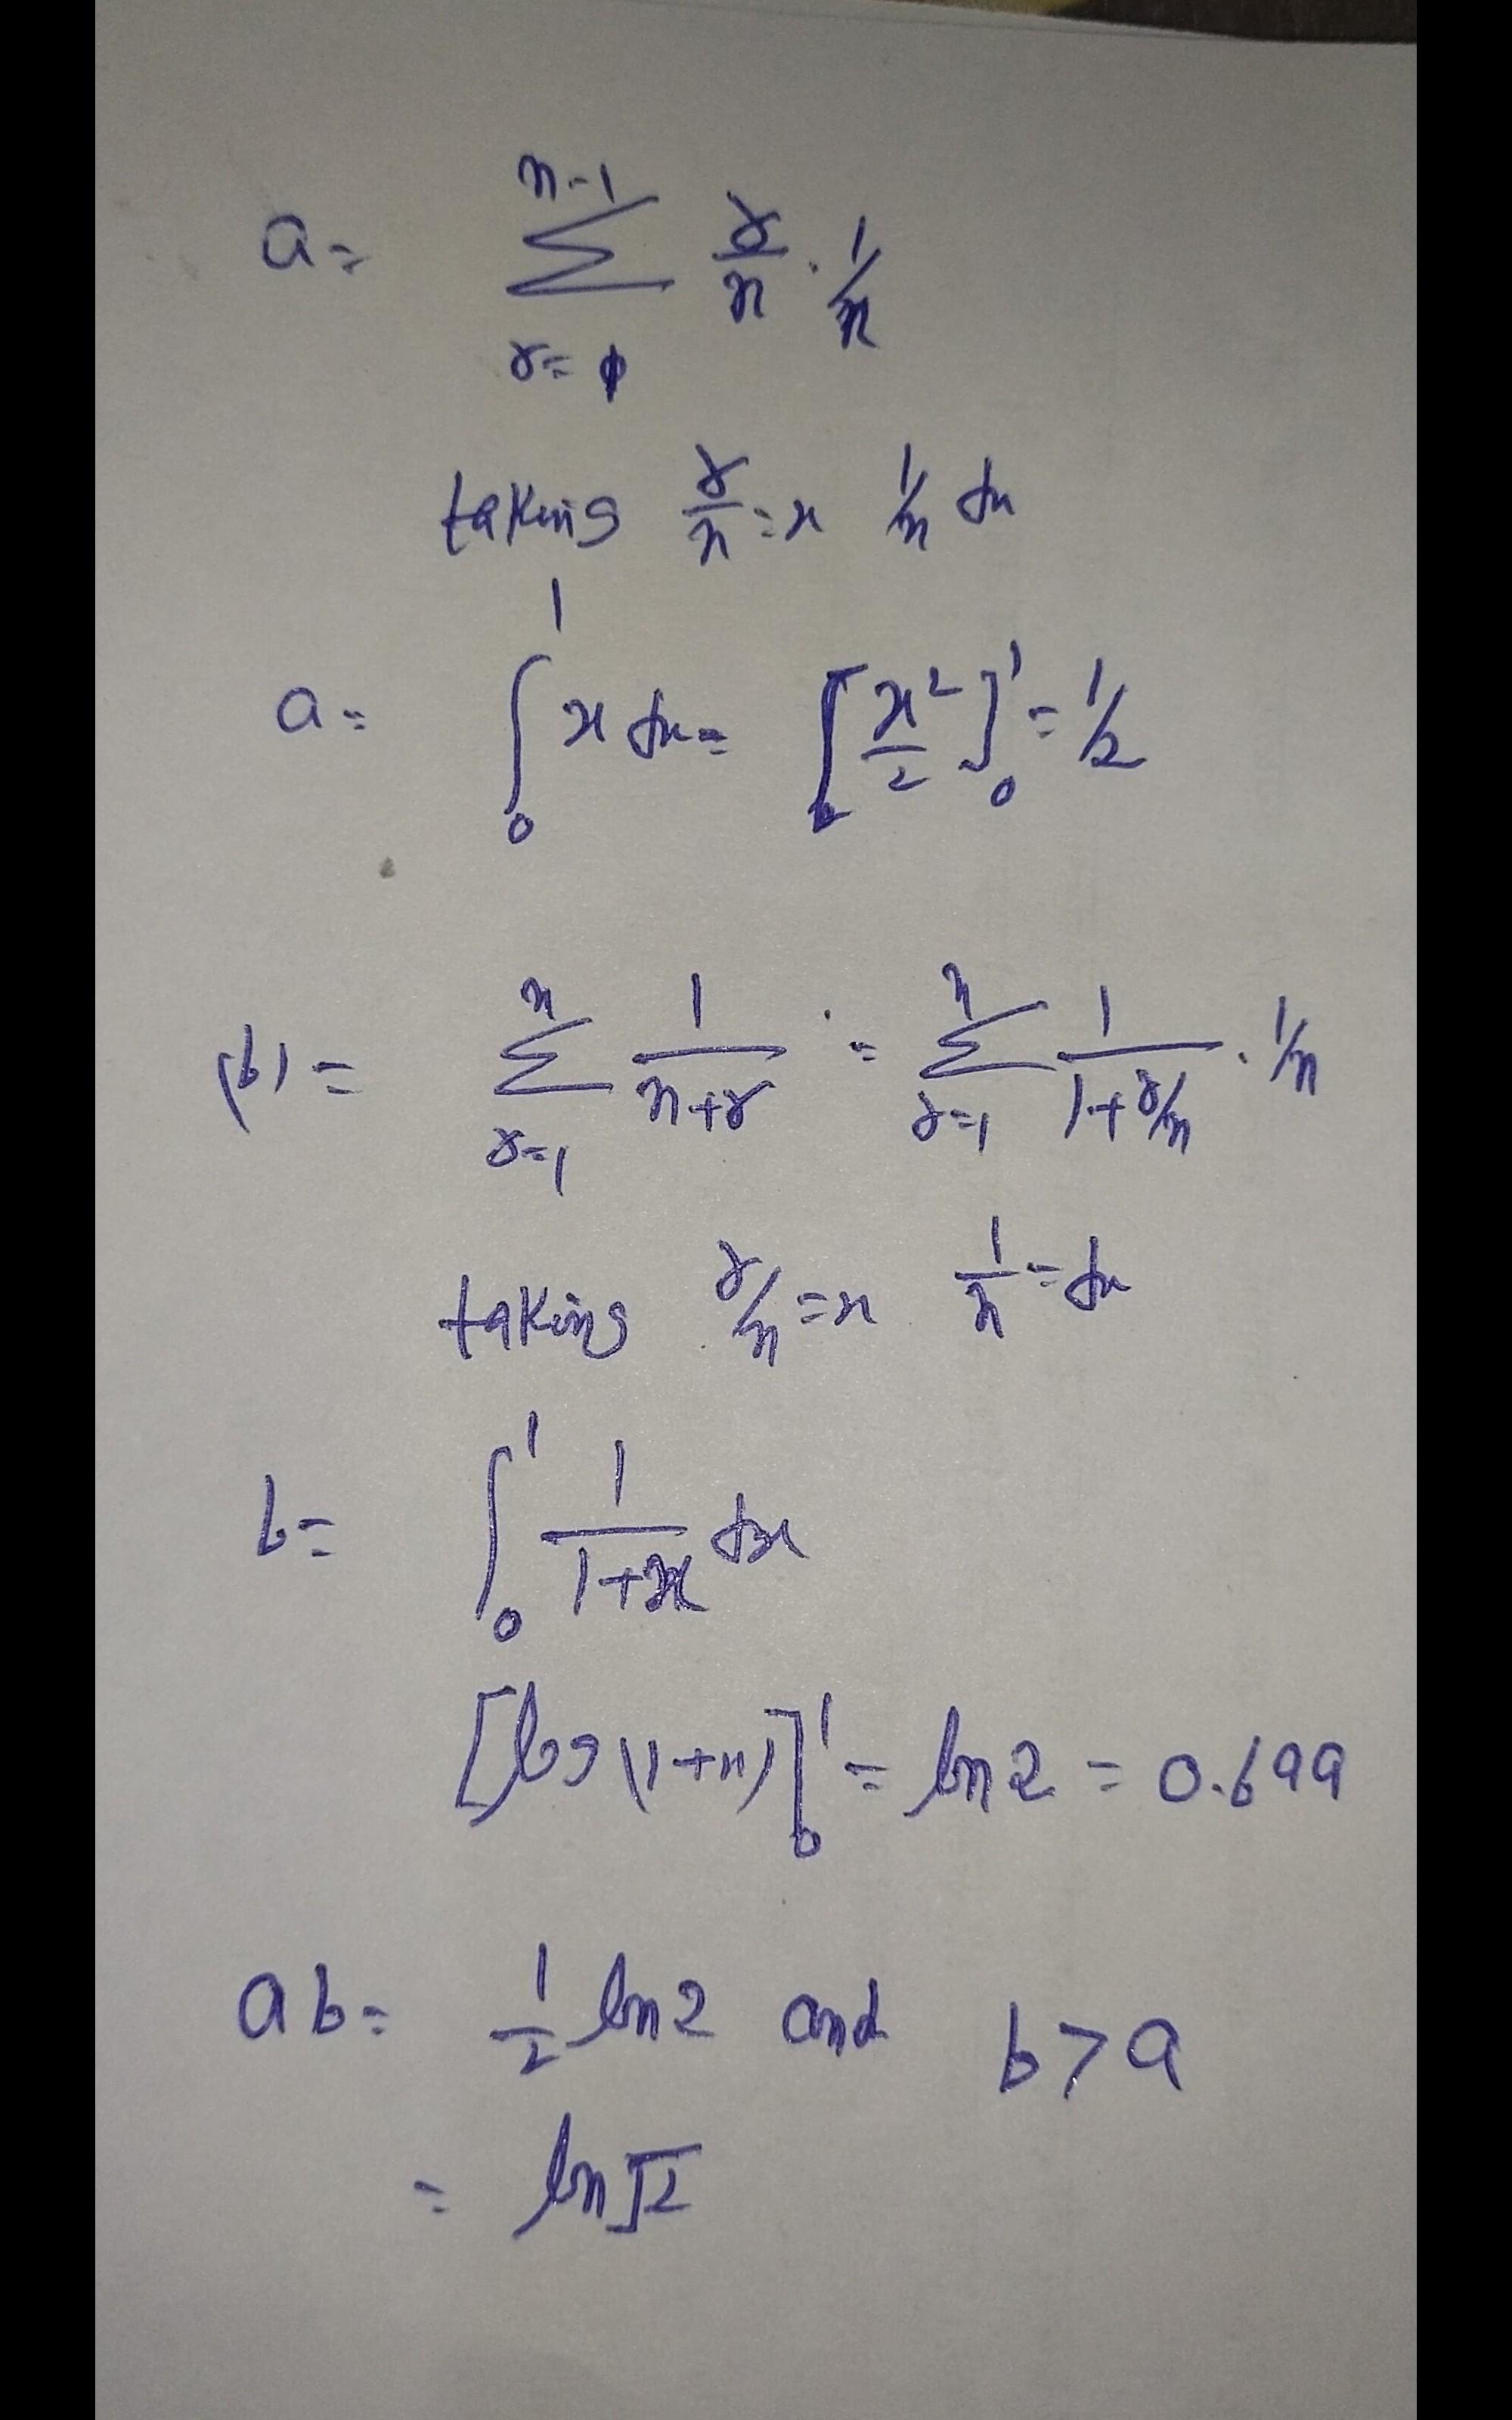 a = \sum_{r=1}^{n-1} \frac{r}{n} \cdot \frac{1}{n}
taking \frac{r}{n} = x \frac{1}{n} dx
a = \int_0^1 x dx = [\frac{x^2}{2}]_0^1 = 1/2
(b) = \sum_{r=1}^{n} \frac{1}{n+r} = \sum_{r=1}^{n} \frac{1}{1+r/n} \cdot 1/n
taking r/n = x \frac{1}{n} = dx
b = \int_0^1 \frac{1}{1+x} dx
[log(1+x)]_0^1 = ln2 = 0.699
ab = \frac{1}{2} ln2 and b > a
= ln\sqrt{2}